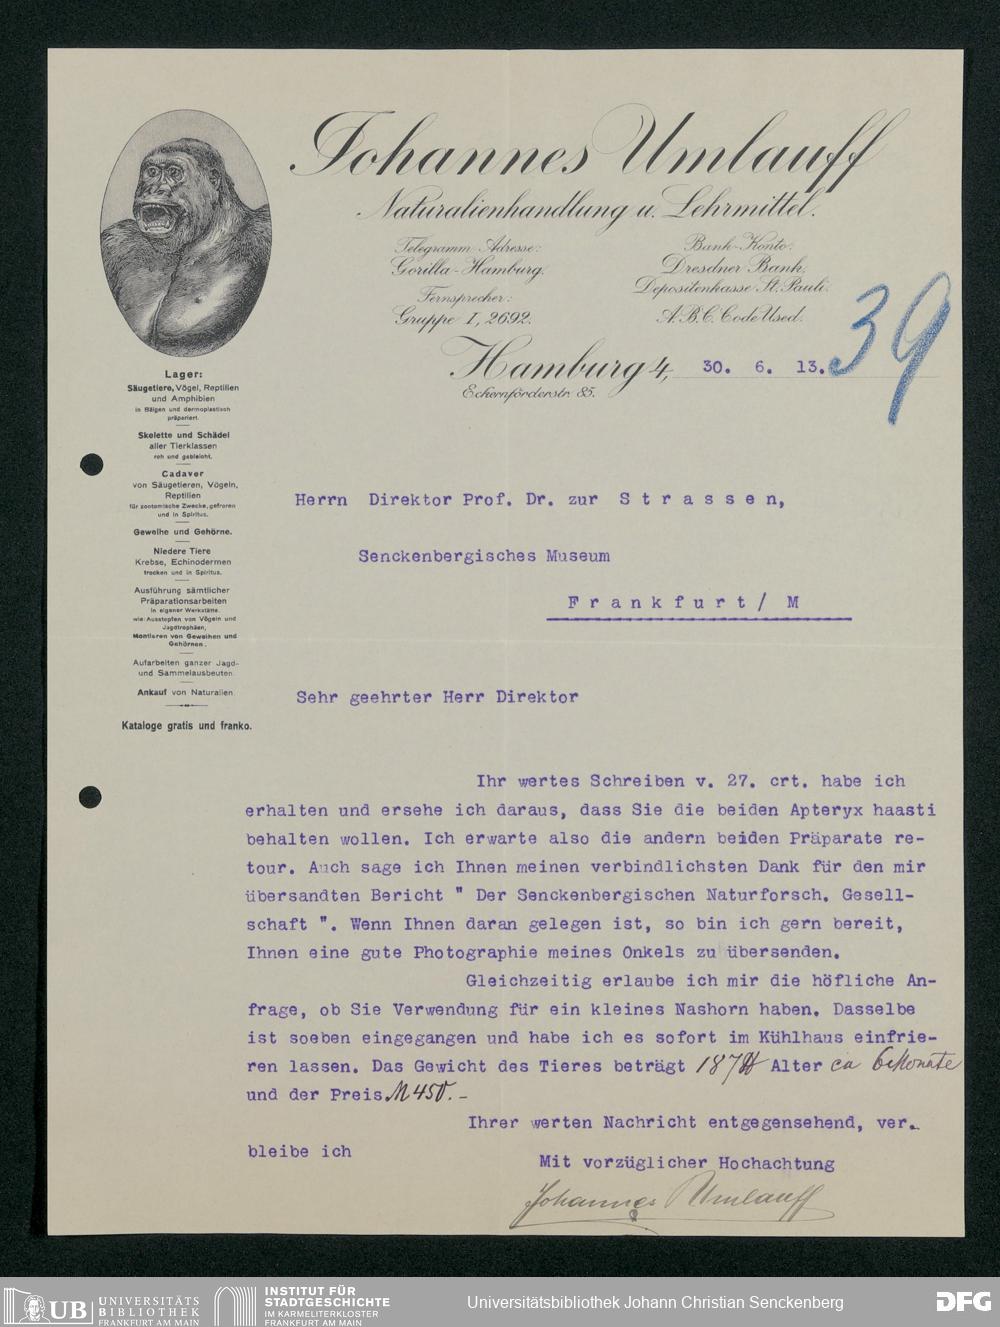 Johannes Umlauff
Naturalienhandlung u. Lehrmittel.
Telegramm-Adresse:
Gorilla-Hamburg.
Fernsprecher:
Gruppe I, 2692.
Bank-Konto:
Dresdner Bank.
Depositenkasse St. Pauli.
A.B.C. Code Used.
39
Hamburg 4, 30. 6. 13.
Eckernförderstr. 85.
Lager:
Säugetiere, Vögel, Reptilien
und Amphibien
in Bälgen und dermoplastisch
präpariert.
Skelette und Schädel
aller Tierklassen
roh und gebleicht.
Cadaver
von Säugetieren, Vögeln,
Reptilien
für zootomische Zwecke, gefroren
und in Spiritus.
Geweihe und Gehörne.
Niedere Tiere
Krebse, Echinodermen
trocken und in Spiritus.
Ausführung sämtlicher
Präparationsarbeiten
in eigener Werkstätte,
wie: Ausstopfen von Vögeln und
Jagdtrophäen,
Montieren von Geweihen und
Gehörnen.
Aufarbeiten ganzer Jagd-
und Sammelausbeuten.
Ankauf von Naturalien.
Kataloge gratis und franko.
Herrn Direktor Prof. Dr. zur S t r a s s e n,
Senckenbergisches Museum
F r a n k f u r t / M
Sehr geehrter Herr Direktor
Ihr wertes Schreiben v. 27. crt. habe ich
erhalten und ersehe ich daraus, dass Sie die beiden Apteryx haasti
behalten wollen. Ich erwarte also die andern beiden Präparate re-
tour. Auch sage ich Ihnen meinen verbindlichsten Dank für den mir
übersandten Bericht " Der Senckenbergischen Naturforsch. Gesell-
schaft ". Wenn Ihnen daran gelegen ist, so bin ich gern bereit,
Ihnen eine gute Photographie meines Onkels zu übersenden.
Gleichzeitig erlaube ich mir die höfliche An-
frage, ob Sie Verwendung für ein kleines Nashorn haben. Dasselbe
ist soeben eingegangen und habe ich es sofort im Kühlhaus einfrie-
ren lassen. Das Gewicht des Tieres beträgt 187 ℔ Alter ca 6 Monate
und der Preis M 450.-
Ihrer werten Nachricht entgegensehend, ver-
bleibe ich
Mit vorzüglicher Hochachtung
Johannes Umlauff
UB UNIVERSITÄTS
BIBLIOTHEK
FRANKFURT AM MAIN
INSTITUT FÜR
STADTGESCHICHTE
IM KARMELITERKLOSTER
FRANKFURT AM MAIN
Universitätsbibliothek Johann Christian Senckenberg
DFG